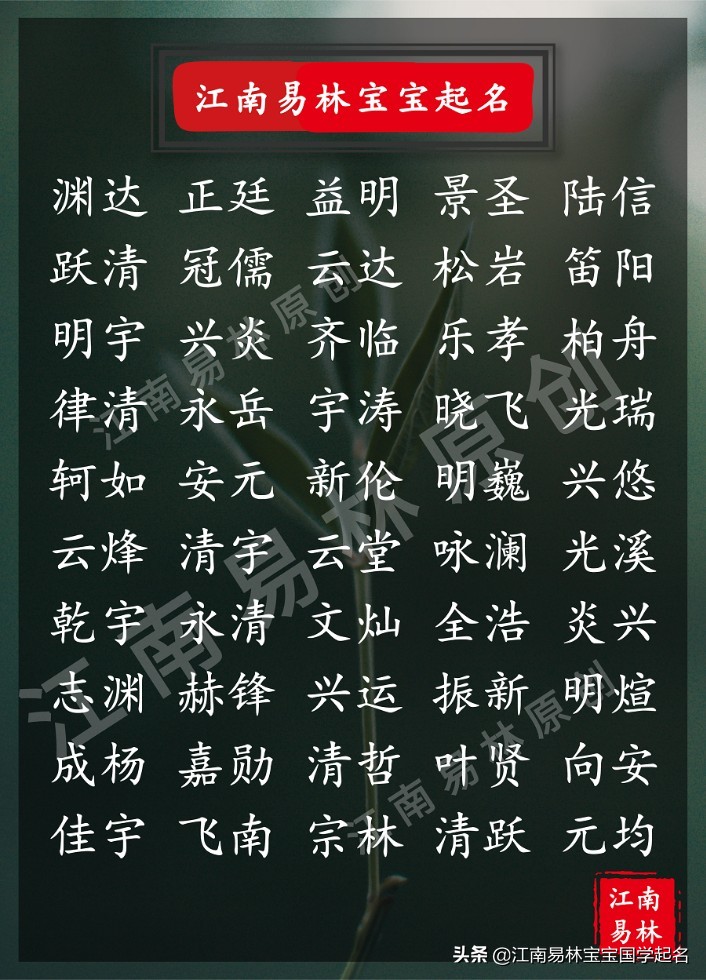 江南易林宝宝起名
渊达 正廷 益明 景圣 陆信
跃清 冠儒 云达 松岩 笛阳
明宇 兴炎 齐临 乐孝 柏舟
律清 永岳 宇涛 晓飞 光瑞
轲如 安元 新伦 明巍 兴悠
云烽 清宇 云堂 咏澜 光溪
乾宇 永清 文灿 全浩 炎兴
志渊 赫锋 兴运 振新 明煊
成杨 嘉勋 清哲 叶贤 向安
佳宇 飞南 宗林 清跃 元均
江南易林原创
江南易林原创
江南易林原创
江南
易林
头条 @江南易林宝宝国学起名